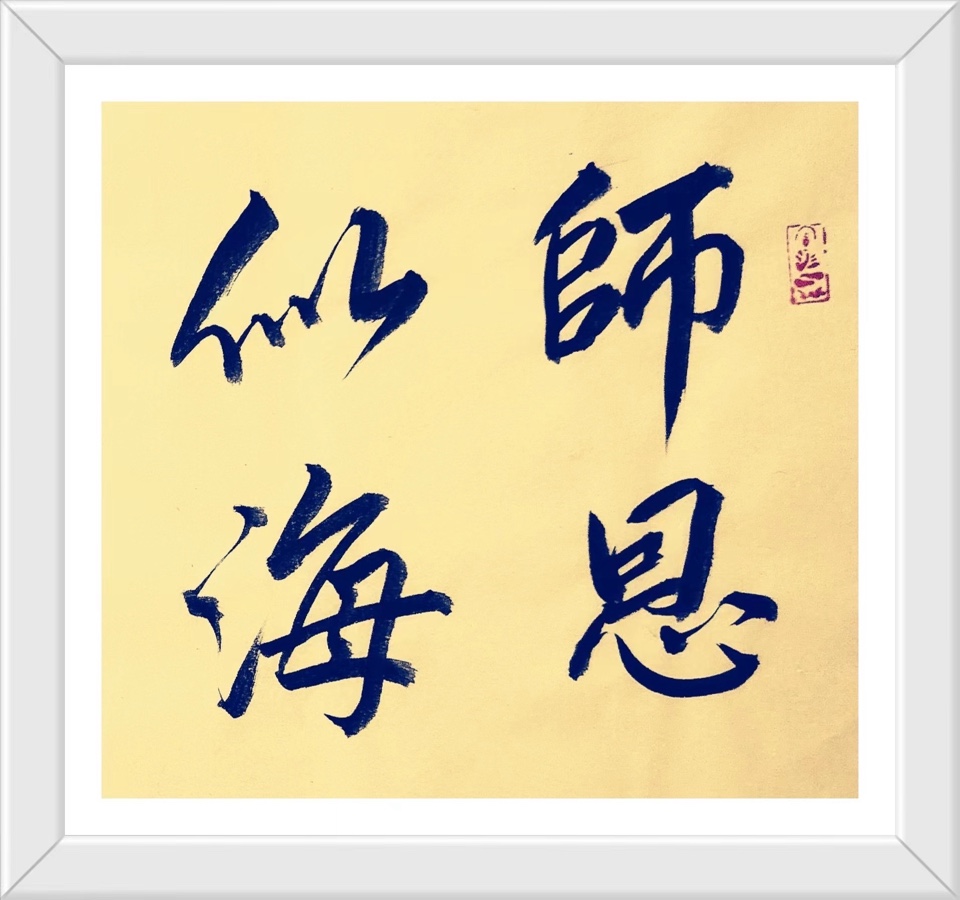 師恩
似海